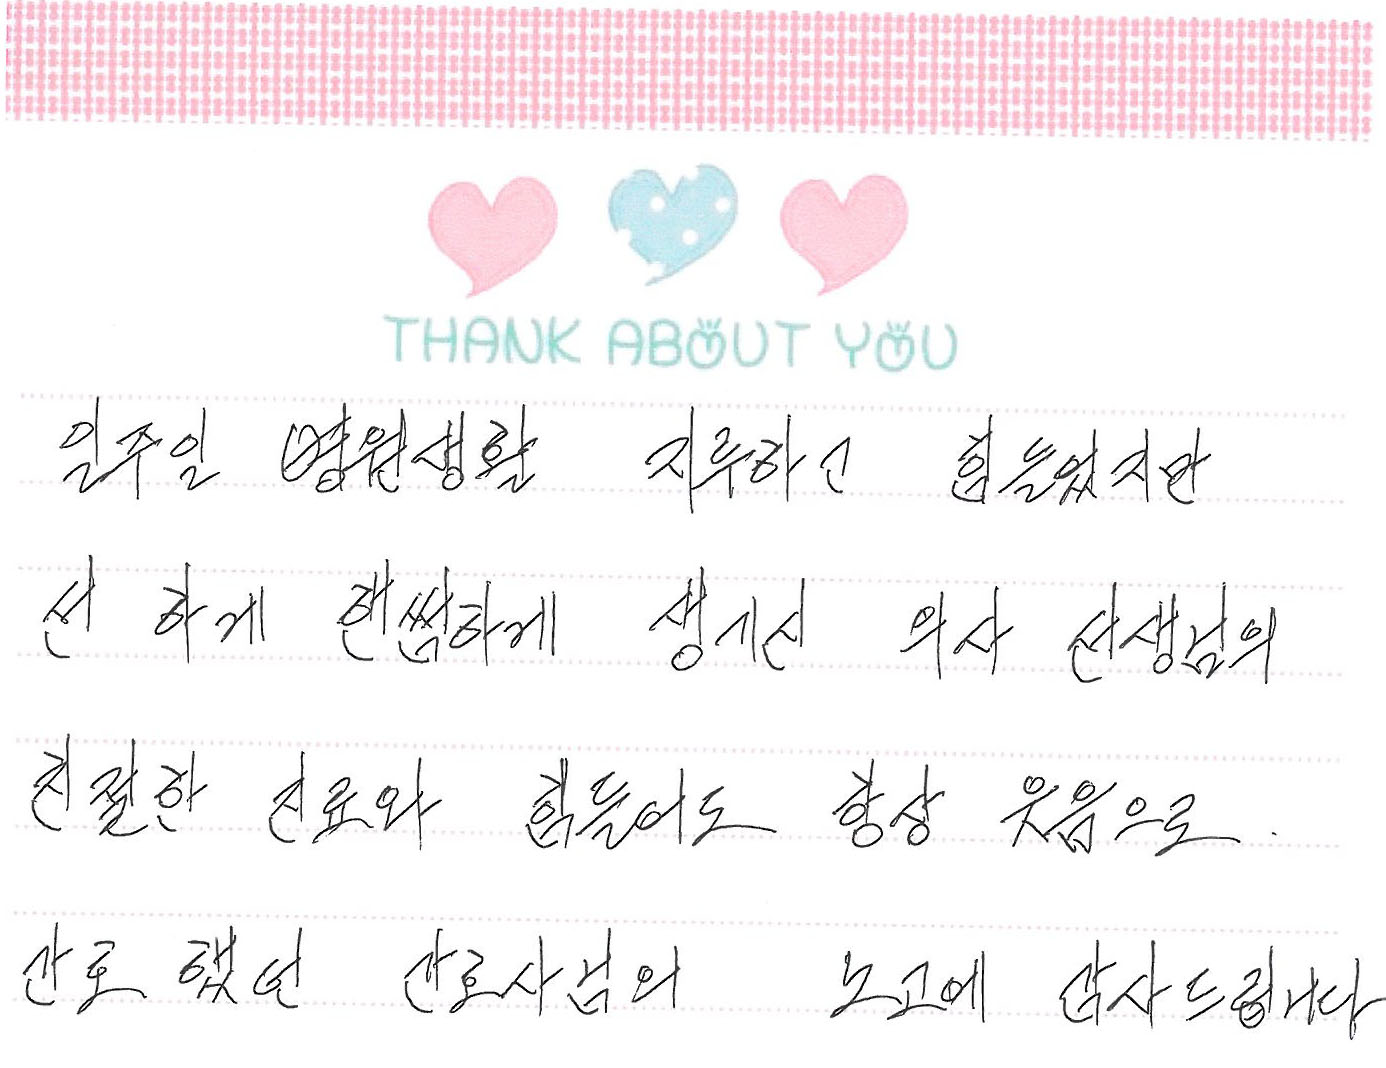 THANK ABOUT YOU
일주일 병원생활 지루하고 힘들었지만
선 하게 핸썸하게 생기신 의사 선생님의
친절한 진료와 힘들어도 항상 웃음으로.
간호 했던 간호사님의 노고에 감사드립니다